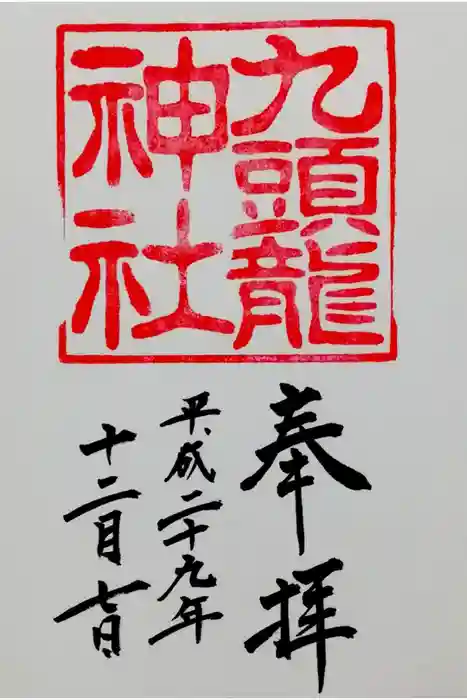 九頭龍
神社
奉拝
平成二十九年
十二月七日